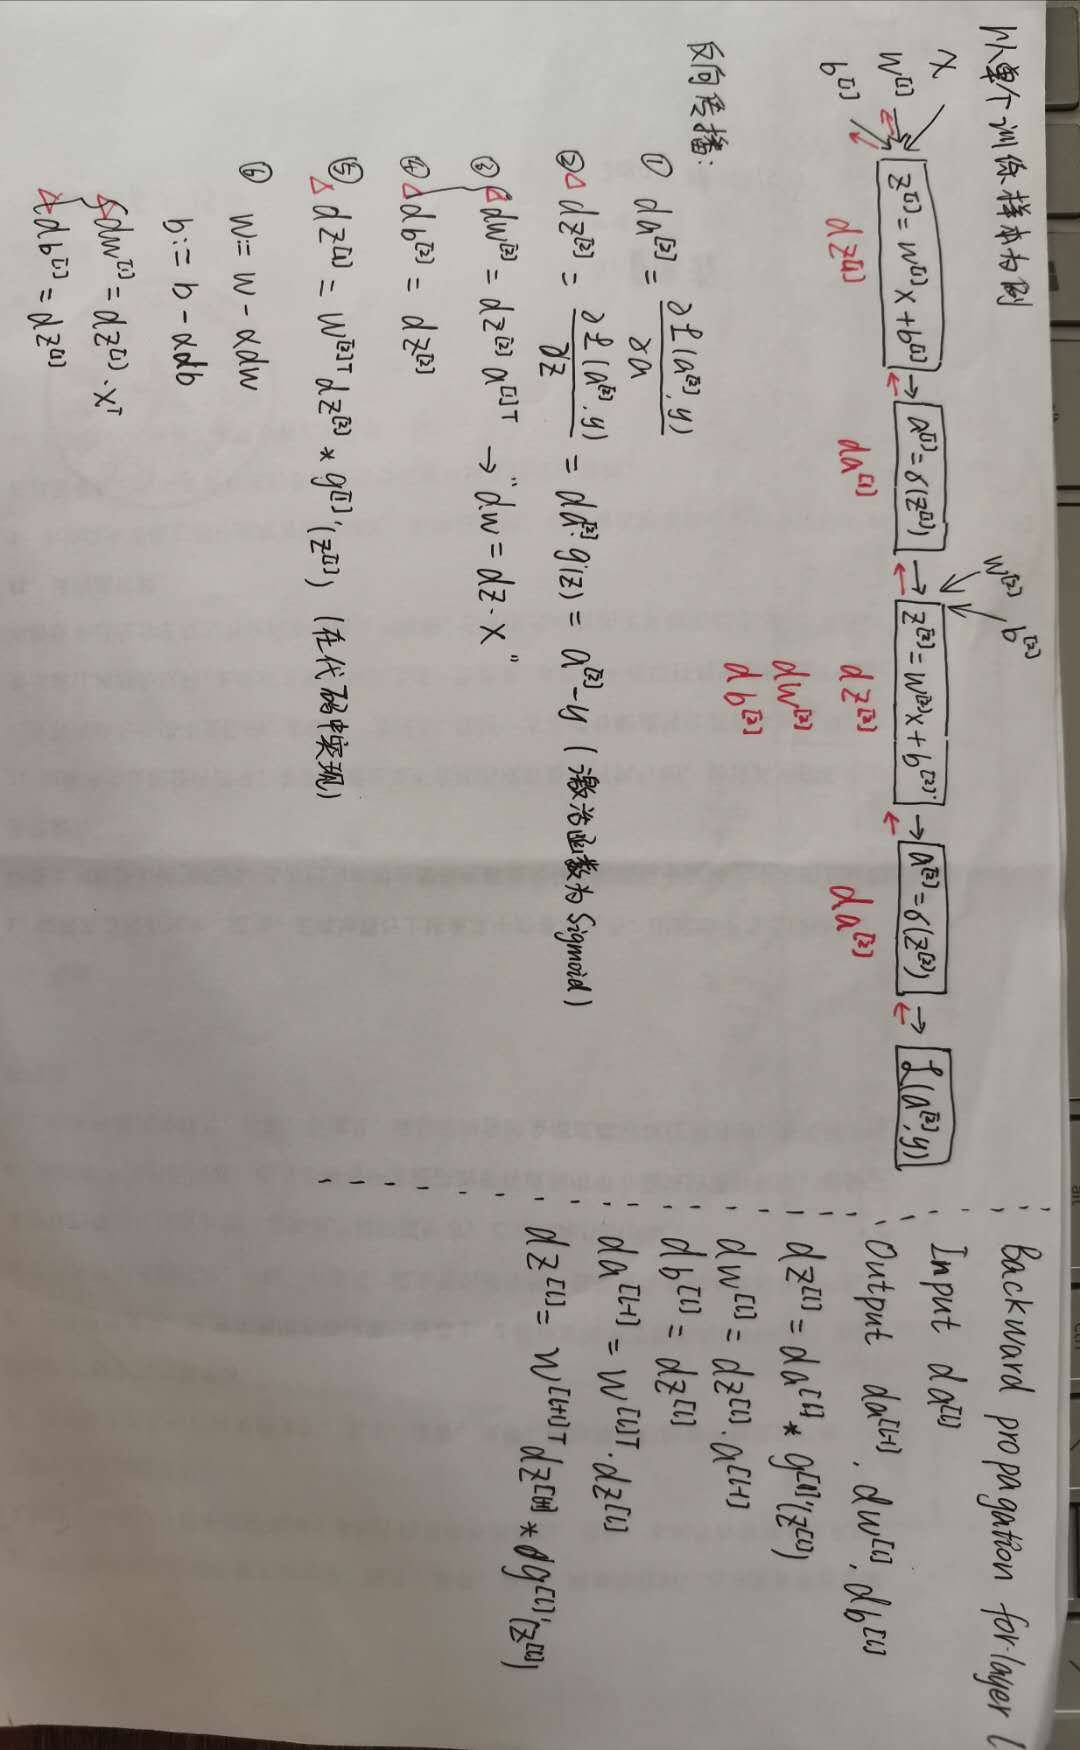 以单个训练样本为例
w^[2] b^[2]
x
w^[1]
b^[1]
z^[1] = w^[1]x + b^[1] → a^[1] = σ(z^[1]) → z^[2] = w^[2]x + b^[2] → a^[2] = σ(z^[2]) → L(a^[2], y)
dz^[1] da^[1] dz^[2] da^[2]
dw^[2]
db^[2]
反向传播:
① da^[2] = ∂L(a^[2], y) / ∂a
②△ dz^[2] = ∂L(a^[2], y) / ∂z = da^[2]·g'(z) = a^[2] - y (激活函数为 Sigmoid)
③ △ dw^[2] = dz^[2] a^[1]T → "dw = dz · x"
④ △ db^[2] = dz^[2]
⑤ △ dz^[1] = w^[2]T dz^[2] * g^[1]'(z^[1]) (在代码中实现)
⑥ w := w - αdw
b := b - αdb
△ dw^[1] = dz^[1] · x^T
△ db^[1] = dz^[1]
Backward propagation for layer l
Input da^[l]
Output da^[l-1], dw^[l], db^[l]
dz^[l] = da^[l] * g^[l]'(z^[l])
dw^[l] = dz^[l] · a^[l-1]
db^[l] = dz^[l]
da^[l-1] = w^[l]T · dz^[l]
dz^[l] = w^[l+1]T dz^[l+1] * dg^[l]'(z^[l])